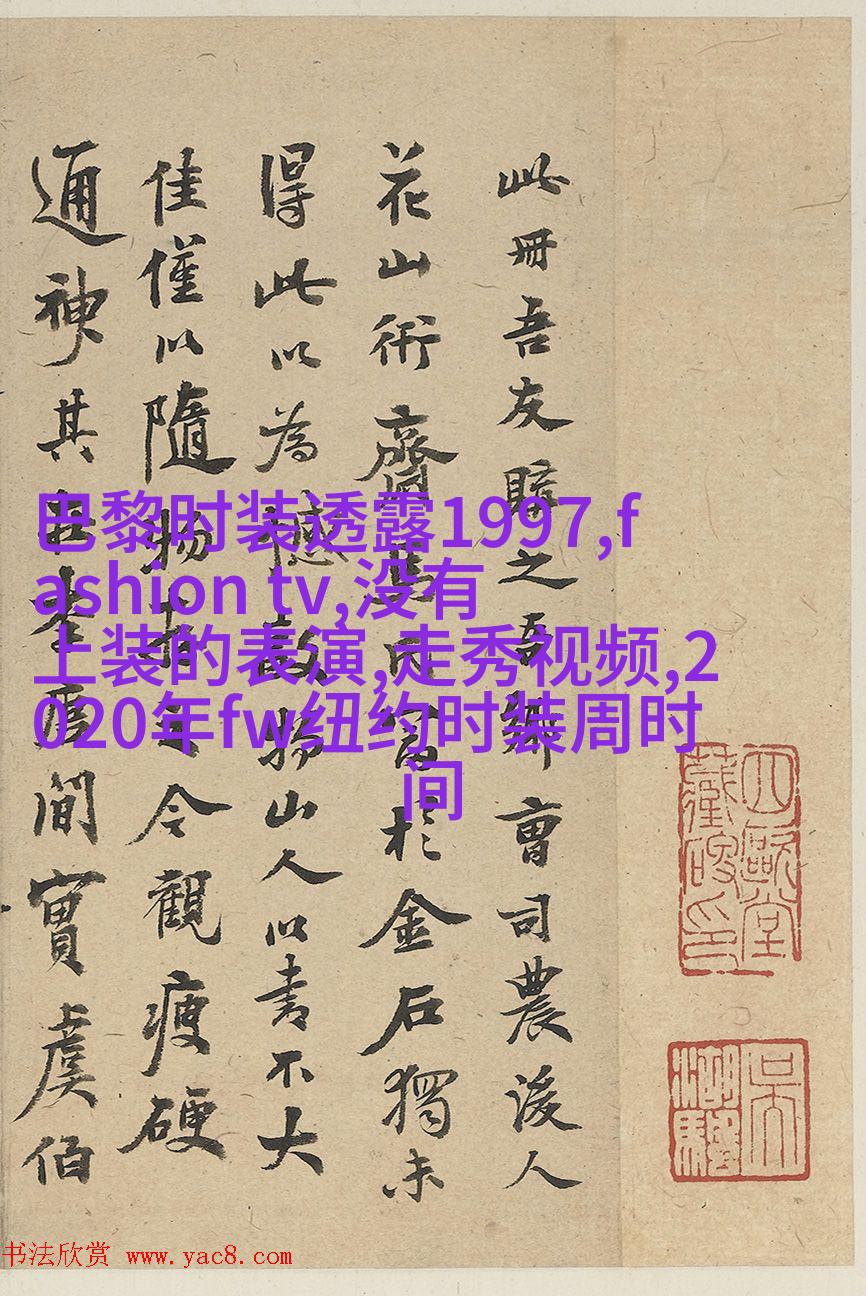 此冊吾友購之吾鄉曹司農後人
花山齋富於金石獨未
得此以為憾故物山人以書不大
佳僅以隨物令觀瘦硬
通神其間實虞伯
巴黎时装透露1997,f
ashion tv,没有
上装的表演,走秀视频,2
020年fw纽约时装周时
间
四歐堂
吳湖
书法欣赏 www.yac8.com